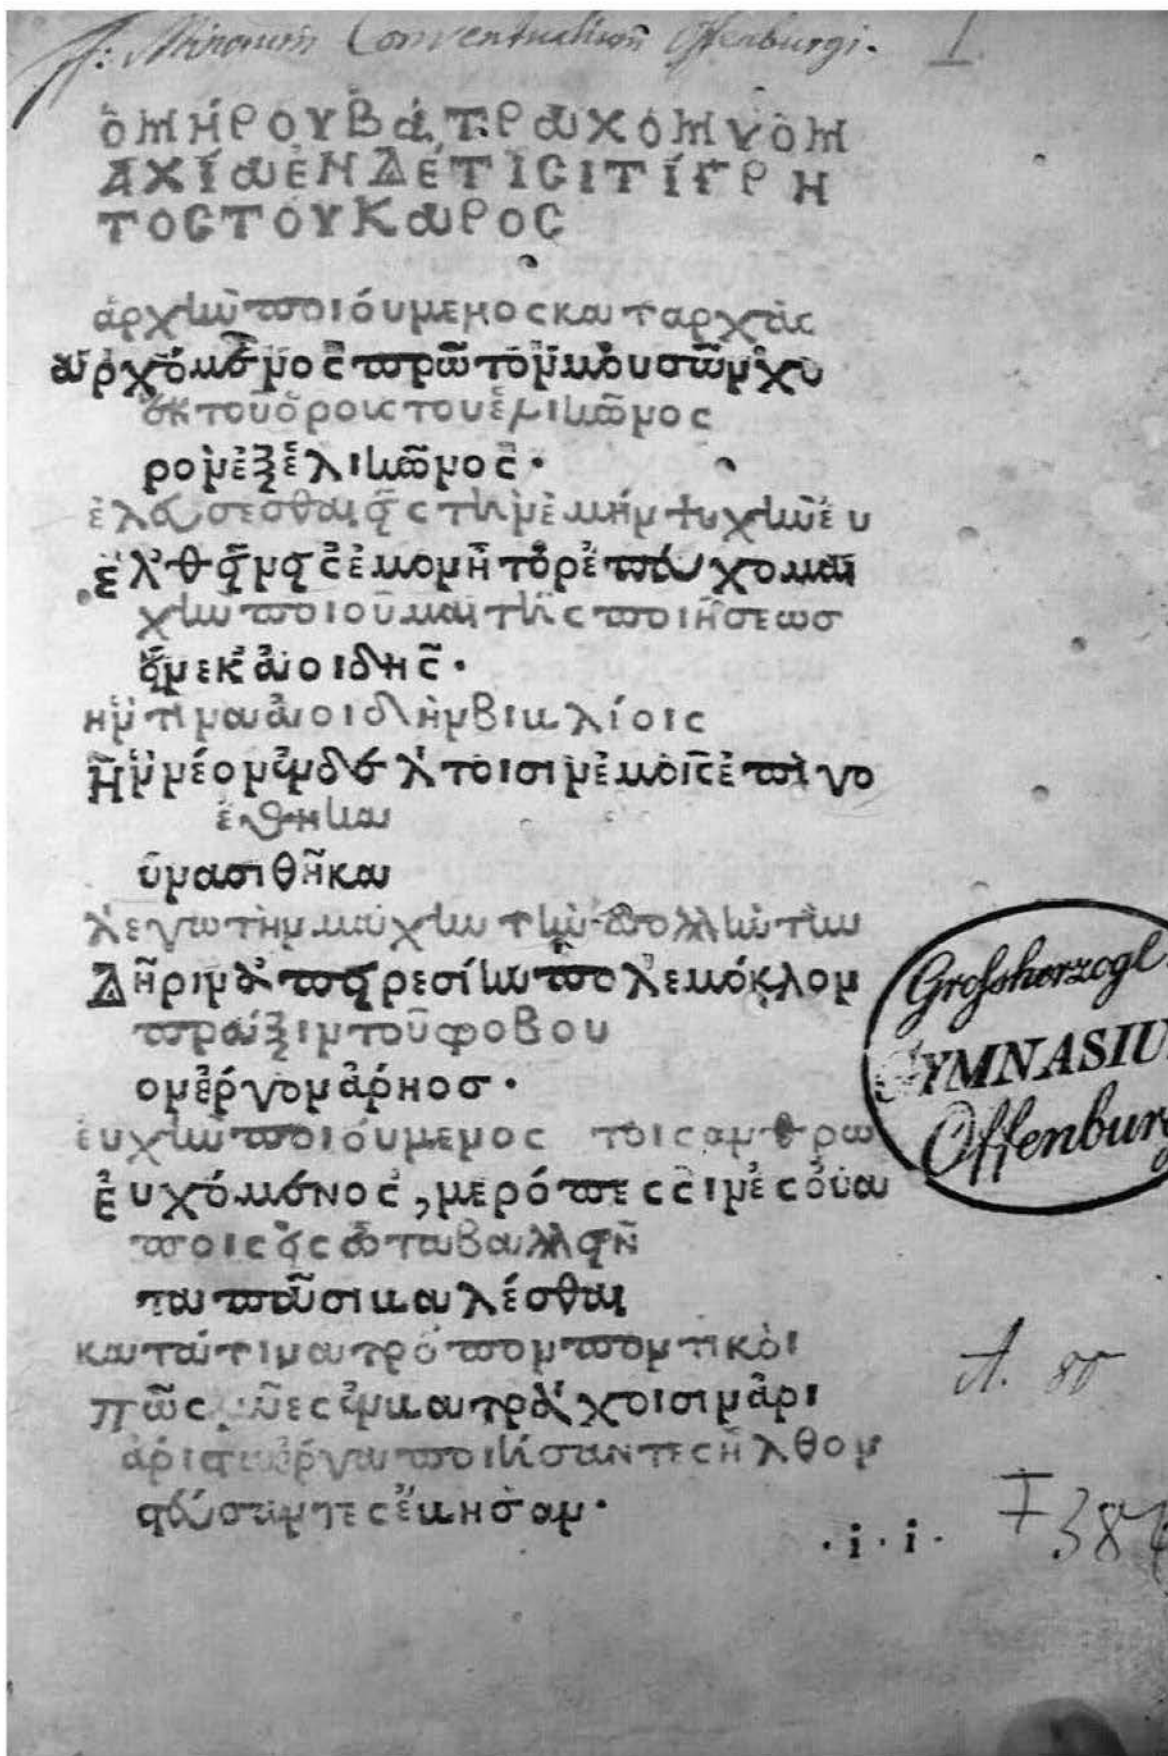 ff: Minorum Conventualium Offenburgi. I
ὉΜΉΡΟΥΒΑΤΡΑΧΟΜΥΟΜ
ΑΧΊΑἘΝΔΈΤΙCΙΤΊΓΡΗ
ΤΟCΤΟΥΚΑΡΟC
ἀρχὴν ποιόυμενοςκαταρχὰς
ἀρχόμενος πρῶτονμουσῶνχο
ἐκτοῦὄρους τουἑλικῶνος
ρονἐξἑλικῶνος·
ἐλάσεσθαι εἰς τὴνἐμήνψυχὴνεὐ
ἐλθεῖν εἰς ἐμονἦτορἐπεύχομαι
χὴν ποιοῦμαι τῆς ποιήσεως
εἵνεκ ἀοιδῆς·
ἥντινα ἀοιδὴνβικλίοις
Ἣννέονἐνδέλτοισινἐμοῖςἐπὶγο
ἔθηκα
ύνασιθῆκα
λέγωτὴνμάχην τὴν πολλὴντὴν
Δῆρινἀπειρεσίην πολεμόκλον
πράξιντοῦφοβου
ονἔργονἄρηος·
ἐυχὴν ποιόυμενος τοιςανθρω
Ἐυχόμενος, μερόπεςςινἐςὄυα
ποις εἰς ὦταβαλλεῖν
τα πᾶσι καλέσθαι
κατάτινατρόπον ποντικὸι
πῶς μῦες ἐνβατράχοισιναρι
ἀριστα ἔργα ποιήσαντες ἦλθον
στεύσαντεςἔβησαν·
·i·i·
Grossherzogl.
GYMNASIU
Offenburg
A. 80
F 38